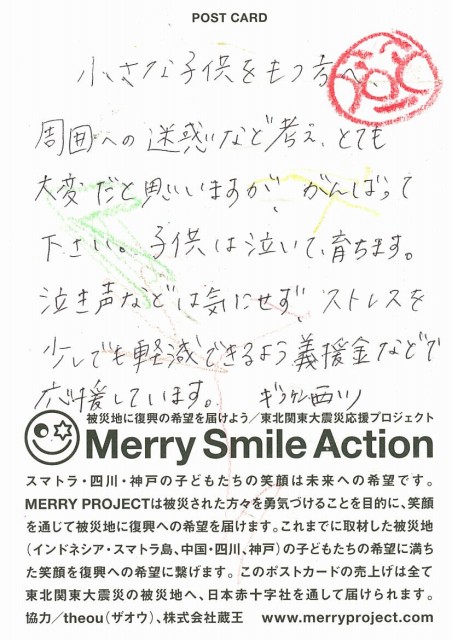 POST CARD
小さな子供をもつ方へ
周囲への迷惑など考え、とても
大変だと思いますが、がんばって
下さい。子供は泣いて、育ちます。
泣き声などは気にせず、ストレスを
少しでも軽減できるよう義援金などで
応援しています。
被災地に復興の希望を届けよう/東北関東大震災応援プロジェクト
Merry Smile Action
スマトラ・四川・神戸の子どもたちの笑顔は未来への希望です。
MERRY PROJECTは被災された方々を勇気づけることを目的に、笑顔
を通じて被災地に復興への希望を届けます。これまでに取材した被災地
(インドネシア・スマトラ島、中国・四川、神戸)の子どもたちの希望に満ち
た笑顔を復興への希望に繋げます。このポストカードの売上げは全て
東北関東大震災の被災地へ、日本赤十字社を通して届けられます。
協力/theou(ザオウ)、株式会社蔵王 www.merryproject.com